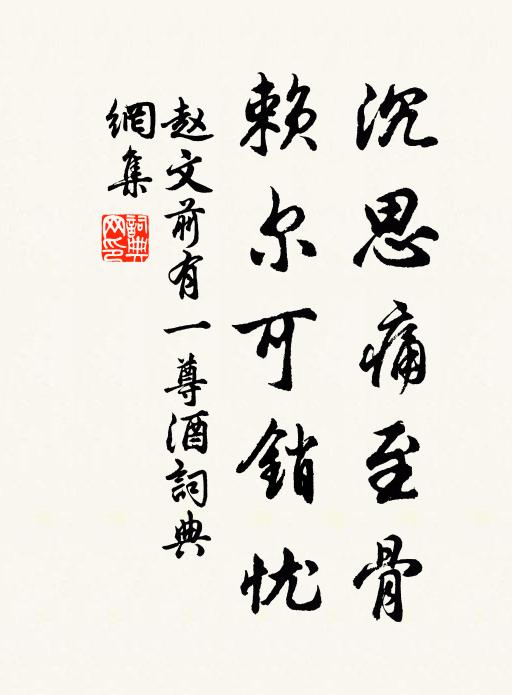 沉思痛至骨
赖尔可銷忧
赵文前有一尊酒詞典
網集
詞典网印